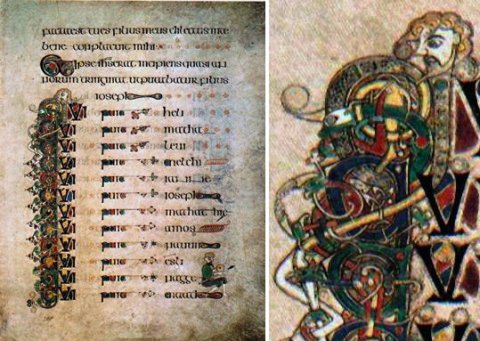 facta est tues filius meus dilectus inte
bene conplacuit mihi
ipse ihs erat incipiens quasi an
norum triginta ut putabatur filius
ioseph
QVI fuit heli
QVI fuit mathat
QVI fuit leui
QVI fuit melchi
QVI fuit
QVI fuit ioseph
QVI fuit mathathie
QVI fuit amos
QVI fuit nauum
QVI fuit esli
QVI fuit nagge
QVI fuit maath